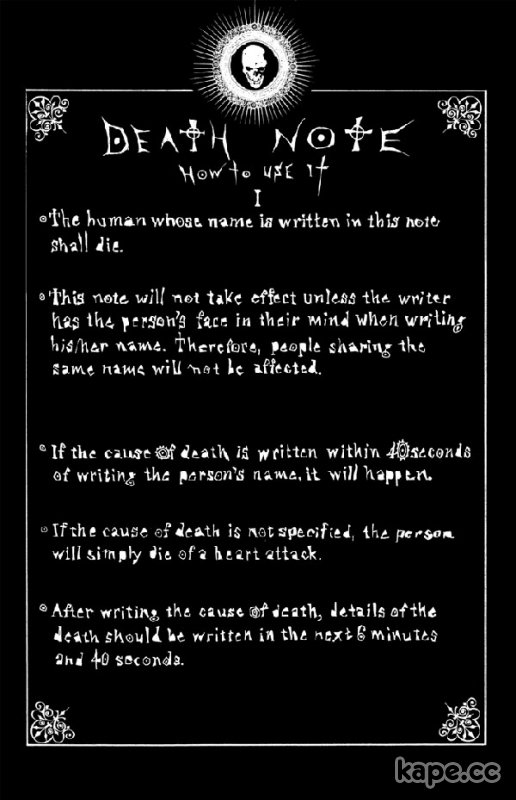 DEATH NOTE
HOW TO USE IT
I
The human whose name is written in this note
shall die.
This note will not take effect unless the writer
has the person's face in their mind when writing
his/her name. Therefore, people sharing the
same name will not be affected.
If the cause of death is written within 40 seconds
of writing the person's name, it will happen.
If the cause of death is not specified, the person
will simply die of a heart attack.
After writing the cause of death, details of the
death should be written in the next 6 minutes
and 40 seconds.
kape.cc